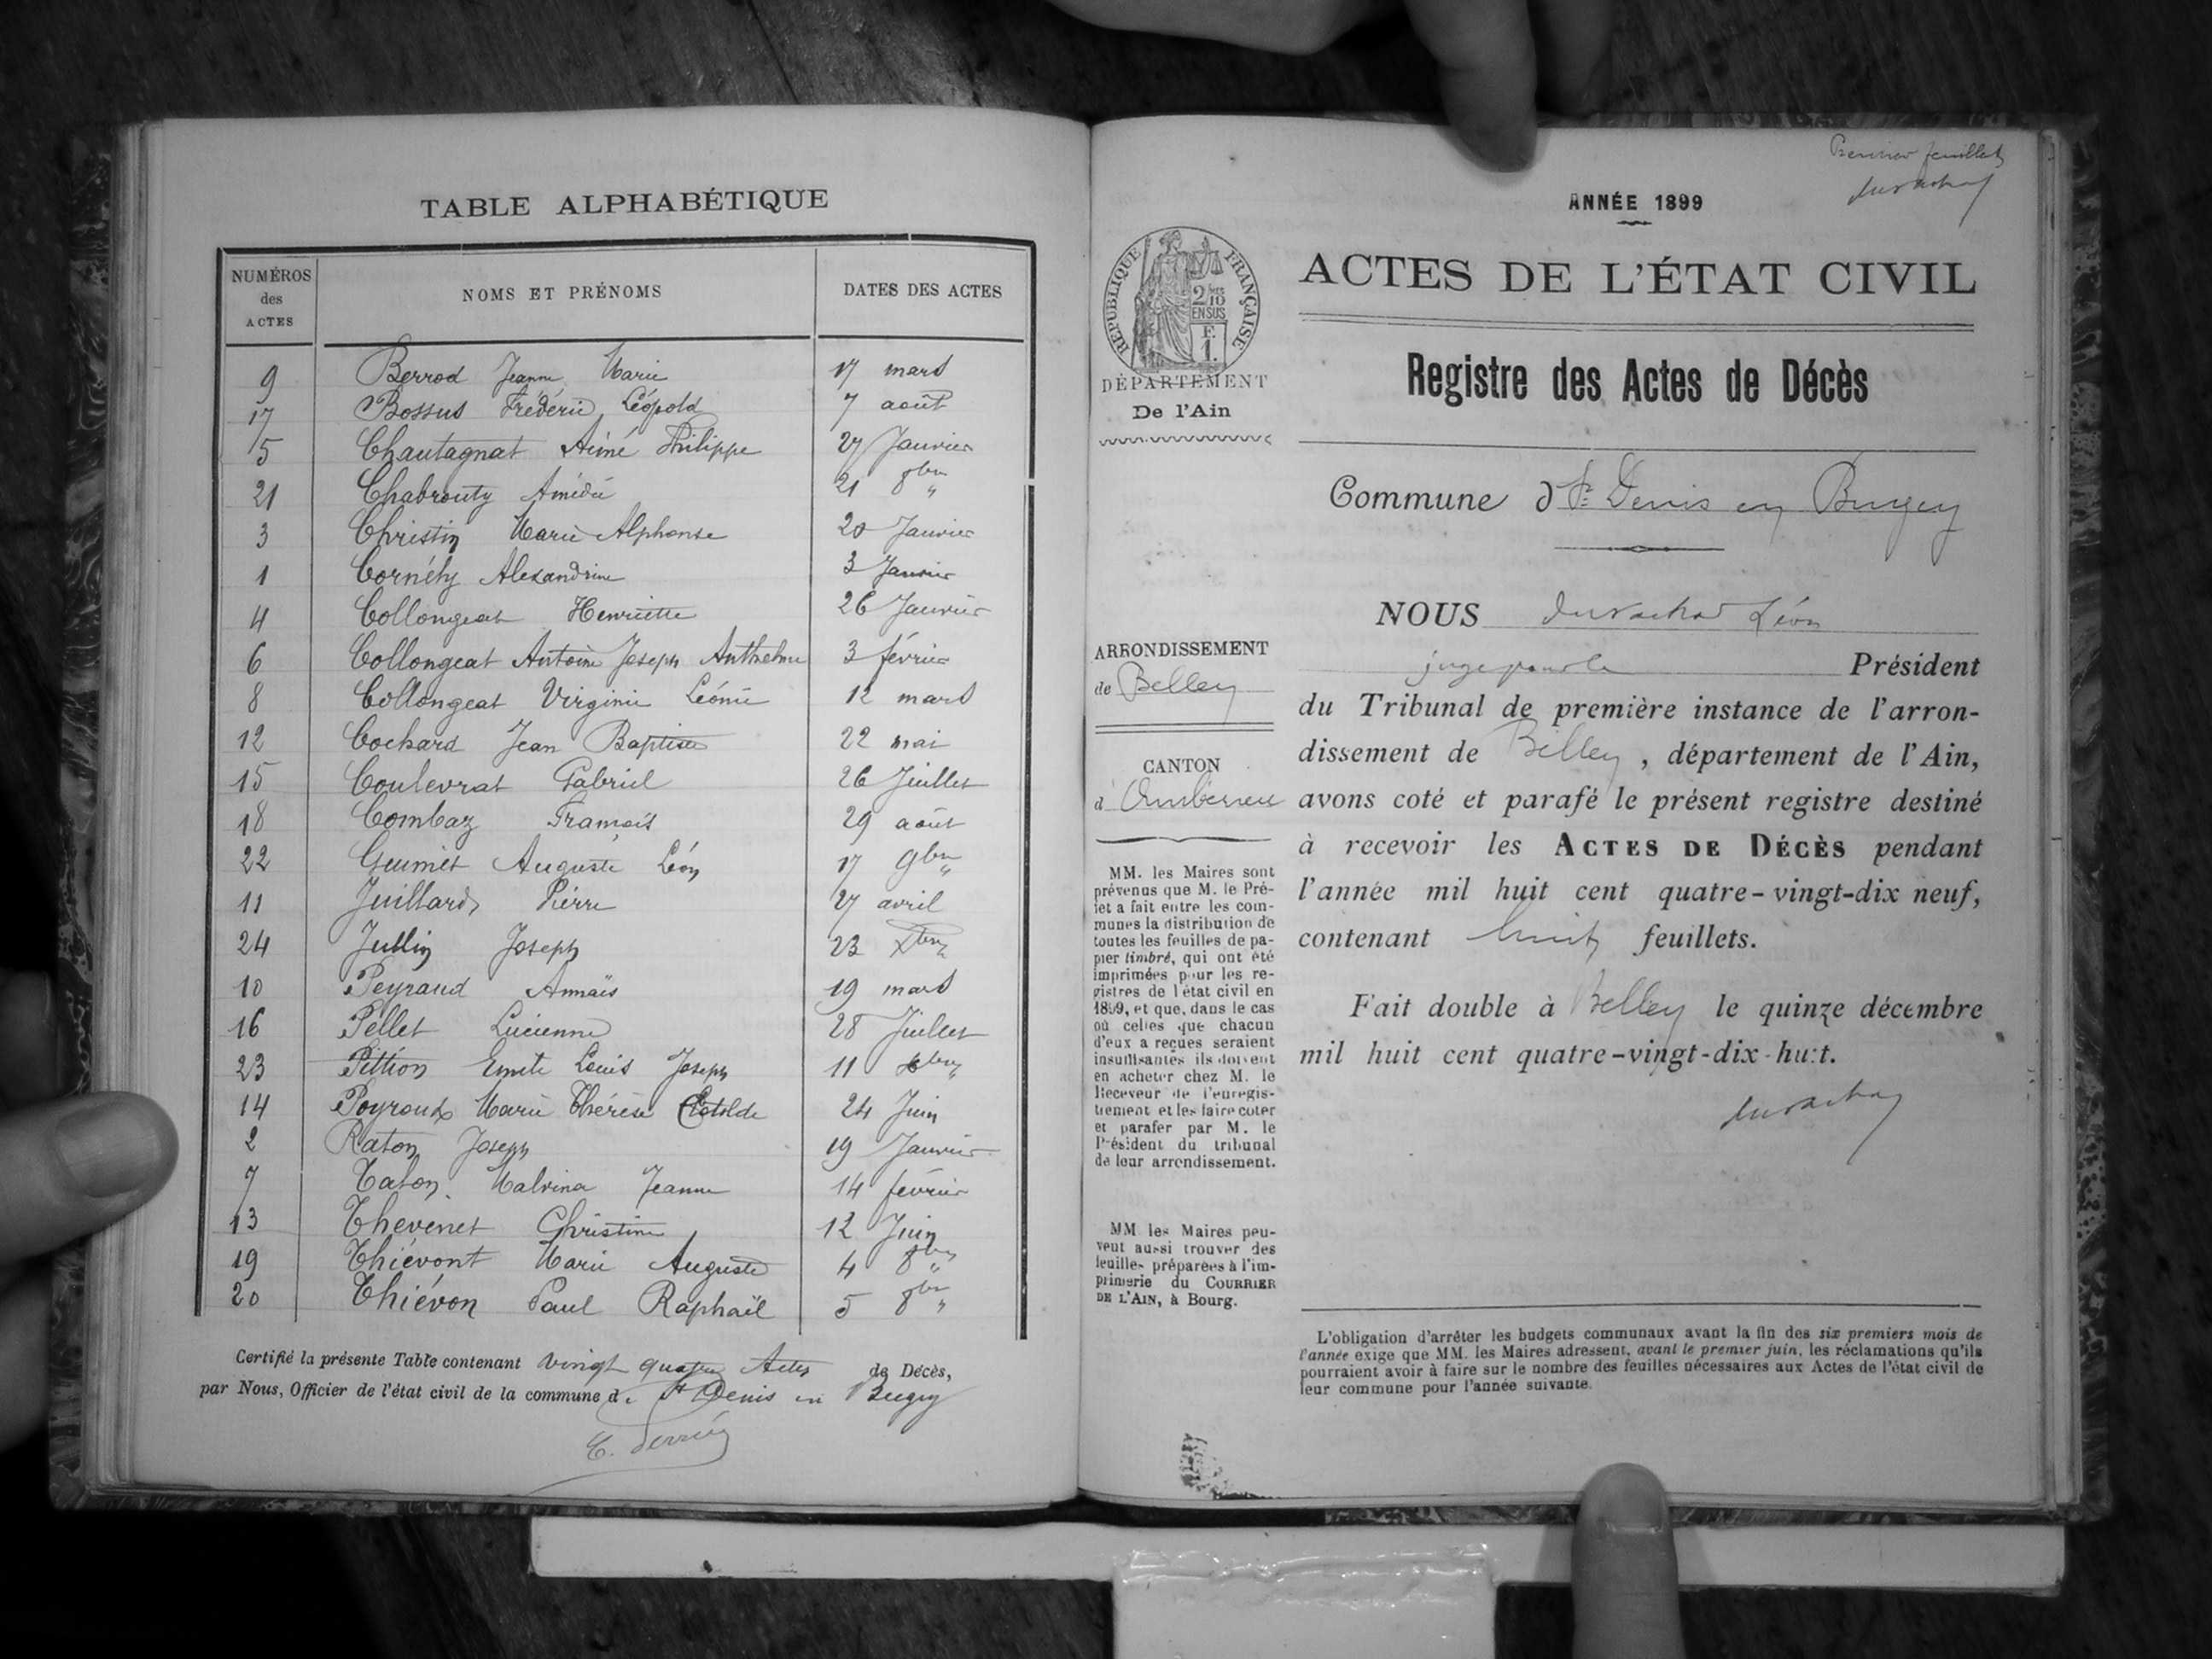 TABLE ALPHABÉTIQUE
NUMÉROS des ACTES NOMS ET PRÉNOMS DATES DES ACTES
9 Berrod Jeanne Marie 17 mars
17 Bossus Frédéric Léopold 7 août
5 Chautagnat Aimé Philippe 27 Janvier
21 Chabrouty Amédée 21 8bre "
3 Christin Marie Alphonse 20 Janvier
1 Cornély Alexandrine 3 Janvier
4 Collongeat Henriette 26 Janvier
6 Collongeat Antoine Joseph Anthelme 3 février
8 Collongeat Virginie Léonie 12 mars
12 Cochard Jean Baptiste 22 mai
15 Coulevrat Gabriel 26 Juillet
18 Combaz François 29 août
22 Guimet Auguste Léon 17 9bre "
11 Juillard Pierre 27 avril
24 Jullin Joseph 23 Xbre
10 Peyraud Annaïs 19 mars
16 Pellet Lucienne 28 Juillet
23 Pittion Emile Louis Joseph 11 Xbre
14 Poyroud Marie Thérèse Clotilde 24 Juin
2 Raton Joseph 19 Janvier
7 Taton Malvina Jeanne 14 février
13 Thevenet Christine 12 Juin
19 Thiévont Marie Auguste 4 8bre "
20 Thiévon Paul Raphaël 5 8bre "
Certifié la présente Table contenant vingt quatre Actes de Décès,
par Nous, Officier de l'état civil de la commune de St Denis en Bugey
Premier feuillet
ANNÉE 1899
ACTES DE L'ÉTAT CIVIL
RÉPUBLIQUE FRANÇAISE
2/10 EN SUS
F. 1.
DÉPARTEMENT
De l'Ain
Registre des Actes de Décès
Commune d St Denis en Bugey
NOUS Durochat Léon
juge pour le Président
ARRONDISSEMENT
de Belley
du Tribunal de première instance de l'arron-
dissement de Belley, département de l'Ain,
CANTON
d'Ambérieu
avons coté et parafé le présent registre destiné
à recevoir les ACTES DE DÉCÈS pendant
l'année mil huit cent quatre-vingt-dix neuf,
contenant huit feuillets.
Fait double à Belley le quinze décembre
mil huit cent quatre-vingt-dix-huit.
MM. les Maires sont
prévenus que M. le Pré-
fet a fait entre les com-
munes la distribution de
toutes les feuilles de pa-
pier timbré, qui ont été
imprimées pour les re-
gistres de l'état civil en
1899, et que, dans le cas
où celles que chacun
d'eux a reçues seraient
insuffisantes ils doivent
en acheter chez M. le
Receveur de l'enregis-
trement et les faire coter
et parafer par M. le
Président du tribunal
de leur arrondissement.
MM les Maires peu-
vent aussi trouver des
feuilles préparées à l'im-
primerie du COURRIER
DE L'AIN, à Bourg.
L'obligation d'arrêter les budgets communaux avant la fin des six premiers mois de
l'année exige que MM. les Maires adressent, avant le premier juin, les réclamations qu'ils
pourraient avoir à faire sur le nombre des feuilles nécessaires aux Actes de l'état civil de
leur commune pour l'année suivante.